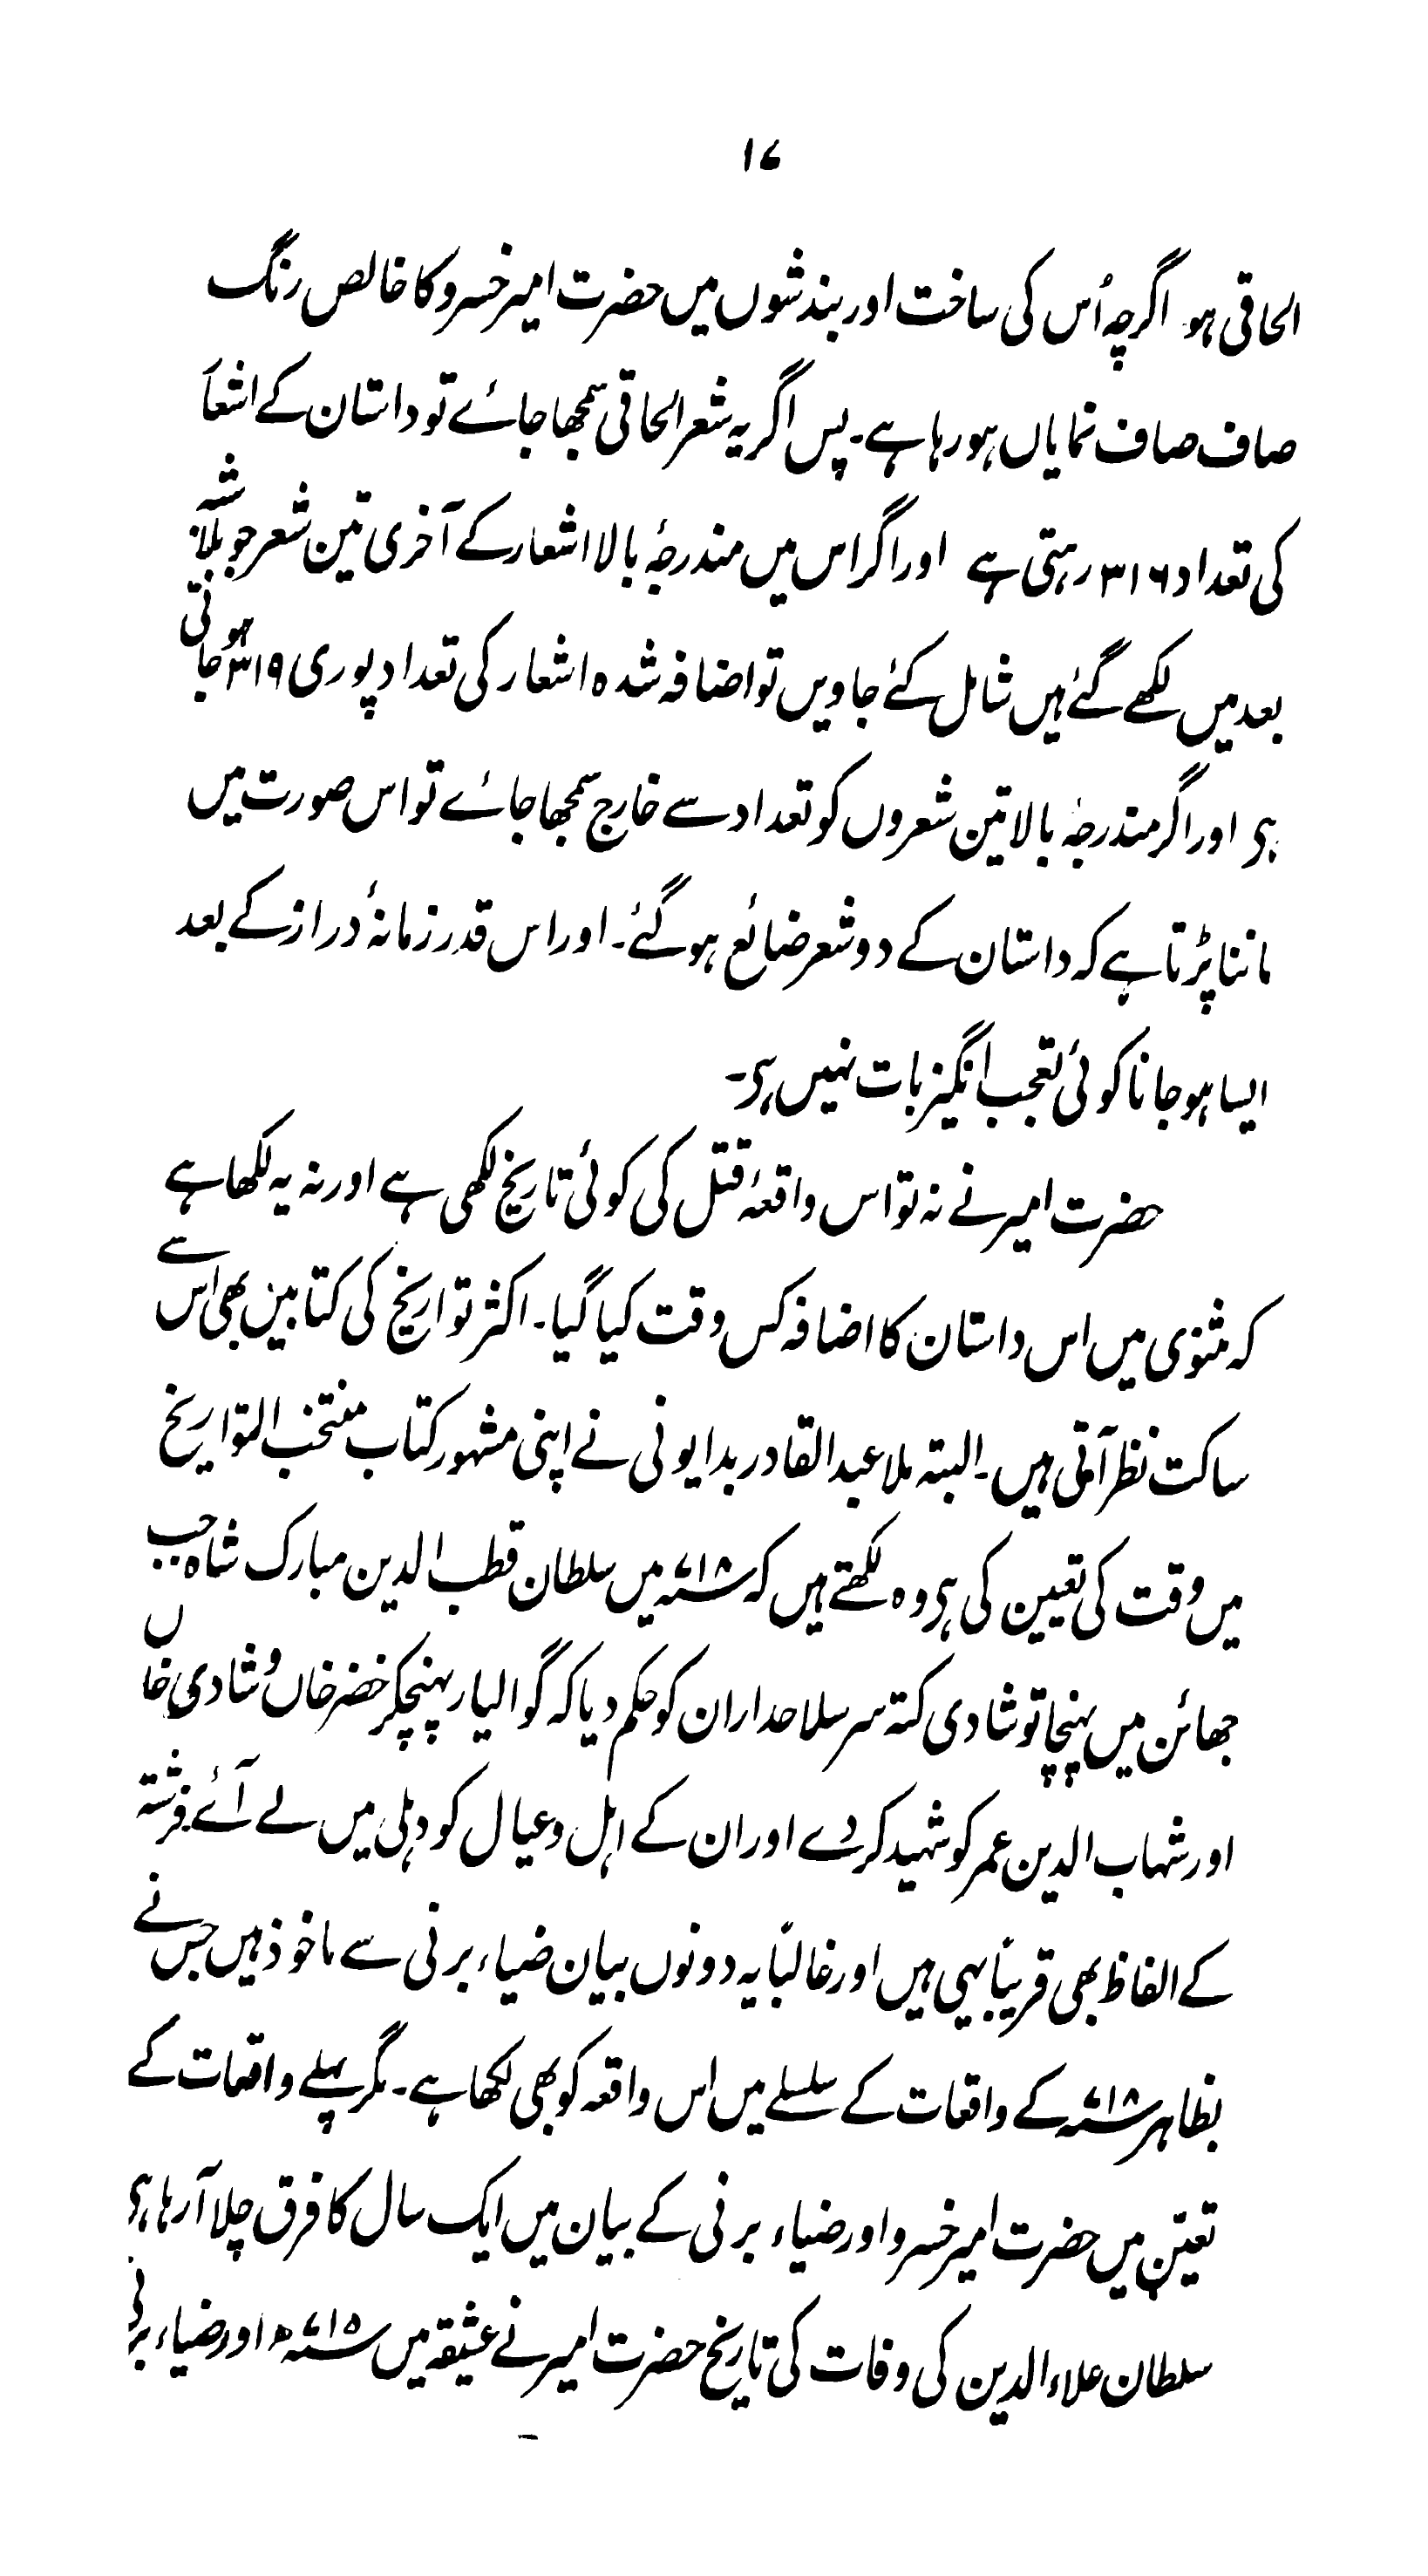 ۱۷
الحاقی ہو اگرچہ اُس کی ساخت اور بندشوں میں حضرت امیر خسرو کا خالص رنگ
صاف صاف نمایاں ہو رہا ہے۔ پس اگر یہ شعر الحاقی سمجھا جائے تو داستان کے اشعار
کی تعداد ۳۱۶ رہتی ہے اور اگر اس میں مندرجۂ بالا اشعار کے آخری تین شعر جو بلاشبہ
بعد میں لکھے گئے ہیں شامل کئے جاویں تو اضافہ شدہ اشعار کی تعداد پوری ۳۱۹ ہو جاتی
ہی اور اگر مندرجۂ بالا تین شعروں کو تعداد سے خارج سمجھا جائے تو اس صورت میں
ماننا پڑتا ہے کہ داستان کے دو شعر ضائع ہو گئے۔ اور اس قدر زمانۂ دراز کے بعد
ایسا ہو جانا کوئی تعجب انگیز بات نہیں ہی۔
حضرت امیر نے نہ تو اس واقعۂ قتل کی کوئی تاریخ لکھی ہے اور نہ یہ لکھا ہے
کہ مثنوی میں اس داستان کا اضافہ کس وقت کیا گیا۔ اکثر تواریخ کی کتابیں بھی اس سے
ساکت نظر آتی ہیں۔ البتہ ملا عبد القادر بدایونی نے اپنی مشہور کتاب منتخب التواریخ
میں وقت کی تعیین کی ہی وہ لکھتے ہیں کہ ۷۱۸ھ میں سلطان قطب الدین مبارک شاہ جب
جھائن میں پہنچا تو شادی کتہ سرسلاحداران کو حکم دیا کہ گوالیار پہنچکر خضر خاں و شادی خاں
اور شہاب الدین عمر کو شہید کر دے اور ان کے اہل و عیال کو دہلی میں لے آئے۔ فرشتہ
کے الفاظ بھی قریباً یہی ہیں اور غالباً یہ دونوں بیان ضیاء برنی سے ماخوذ ہیں جس نے
بظاہر ۷۱۸ھ کے واقعات کے سلسلے میں اس واقعہ کو بھی لکھا ہے۔ مگر پہلے واقعات کے
تعیّن میں حضرت امیر خسرو اور ضیاء برنی کے بیان میں ایک سال کا فرق چلا آ رہا ہی
سلطان علاء الدین کی وفات کی تاریخ حضرت امیر نے عشیقہ میں ۷۱۵ھ اور ضیاء برنی